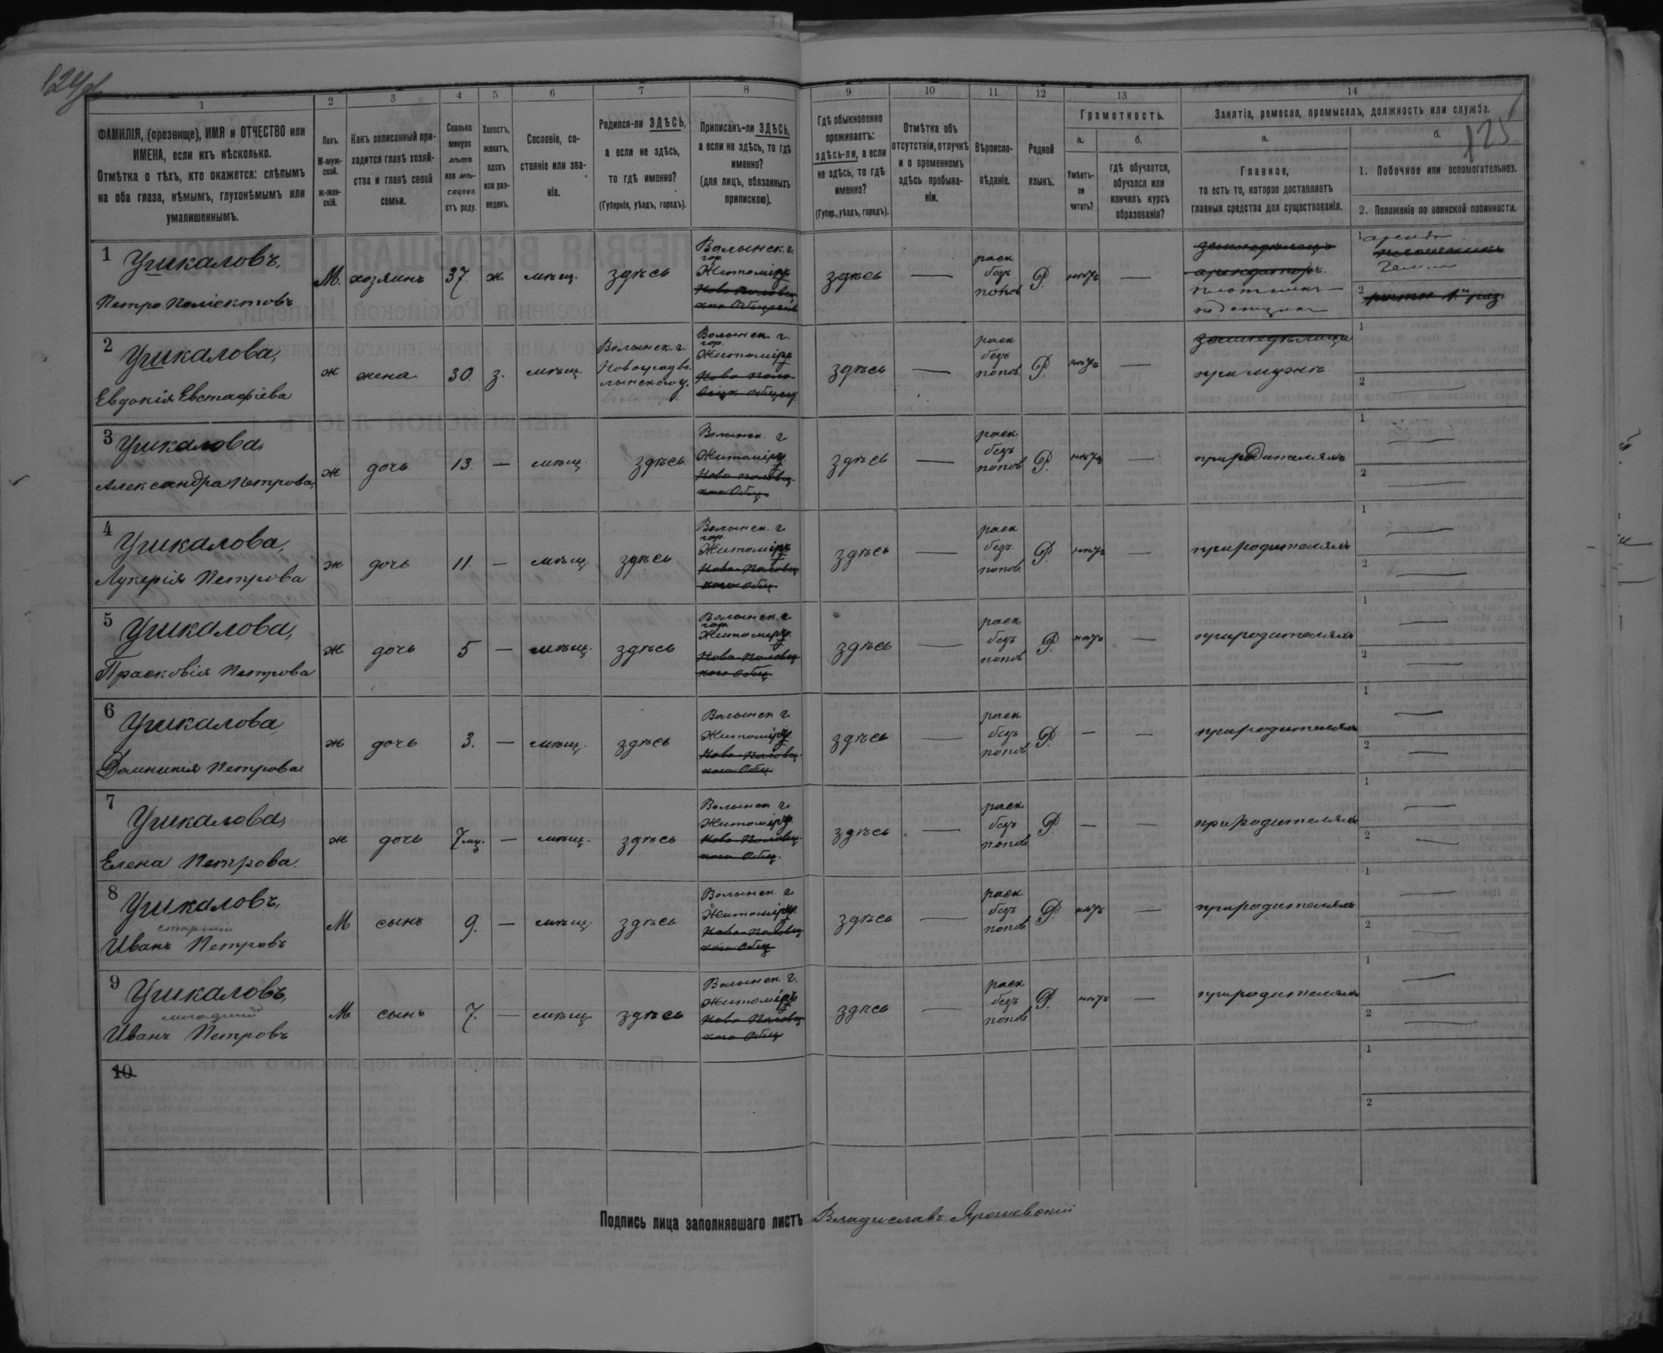 124об
125
1 2 3 4 5 6 7 8 9 10 11 12 13 14
ФАМИЛІЯ, (прозвище), ИМЯ и ОТЧЕСТВО или
ИМЕНА, если ихъ нѣсколько.
Отмѣтка о тѣхъ, кто окажется: слѣпымъ
на оба глаза, нѣмымъ, глухонѣмымъ или
умалишеннымъ.
Полъ.
М-муж-
ской.
ж-жен-
скій.
Какъ записанный при-
ходится главѣ хозяй-
ства и главѣ своей
семьи.
Сколько
минуло
лѣтъ
или мѣ-
сяцевъ
отъ роду.
Холостъ,
женатъ,
вдовъ
или раз-
веденъ.
Сословіе, со-
стояніе или зва-
ніе.
Родился-ли ЗДѢСЬ,
а если не здѣсь,
то гдѣ именно?
(Губернія, уѣздъ, городъ).
Приписанъ-ли ЗДѢСЬ,
а если не здѣсь, то гдѣ
именно?
(для лицъ, обязанныхъ
припискою).
Гдѣ обыкновенно
проживаетъ:
здѣсь-ли, а если
не здѣсь, то гдѣ
именно?
(Губер., уѣздъ, городъ).
Отмѣтка объ
отсутствіи, отлучкѣ
и о временномъ
здѣсь пребыва-
ніи.
Вѣроиспо-
вѣданіе.
Родной
языкъ.
Грамотность.
а.
Умѣетъ-
ли
читать?
б.
гдѣ обучается,
обучался или
кончилъ курсъ
образованія?
Занятіе, ремесло, промыселъ, должность или служба.
а.
Главное,
то есть то, которое доставляетъ
главныя средства для существованія.
б.
1. Побочное или вспомогательное.
2. Положеніе по воинской повинности.
1 Ушкаловъ,
Петръ Поліектовъ
М. хозяинъ 37. ж. мѣщ. здѣсь
Волынск. г.
гор.
Житоміръ
Ново-Половец
кого Общества
здѣсь — раск
безъ
попов Р. нѣтъ —
земледѣлецъ
арендаторъ
плотникъ
поденщикъ
2 Ушкалова,
Евдокія Евстафіева
ж жена 30. з. мѣщ.
Волынск. г.
Новоградъ
лынского у.
Волынск. г.
гор.
Житоміръ
здѣсь — раск
безъ
попов Р. нѣтъ —
земледѣлица
при мужѣ
3 Ушкалова
Александра Петрова,
ж дочь 13. — мѣщ здѣсь
Волынск. г
Житоміръ
Ново-Половец
кого Общ
здѣсь — раск
безъ
попов Р. нѣтъ — при родителяхъ
4 Ушкалова,
Лукерія Петрова
ж дочь 11. — мѣщ. здѣсь
Волынск. г
гор.
Житоміръ
Ново-Половец
кого Общ
здѣсь — раск
безъ
попов Р. нѣтъ — при родителяхъ
5 Ушкалова,
Прасковія Петрова
ж. дочь 5 — мѣщ. здѣсь
Волынск. г
гор.
Житоміръ
Ново-Половец
кого Общ
здѣсь — раск
безъ
попов Р. нѣтъ — при родителяхъ
6 Ушкалова
Домникія Петрова
ж дочь 3. — мѣщ. здѣсь
Волынск г.
Житоміръ
Ново-Половец
кого Общ
здѣсь — раск
безъ
попов Р. — — при родителяхъ
7 Ушкалова,
Елена Петрова.
ж дочь 7 мц. — мѣщ. здѣсь
Волынск г.
Житоміръ
Ново-Половец
кого Общ.
здѣсь — раск
безъ
попов Р. — — при родителяхъ
8 Ушкаловъ,
старшій
Иванъ Петровъ
М сынъ 9. — мѣщ. здѣсь
Волынск. г
Житоміръ
Ново-Половец
кого Общ
здѣсь — раск
безъ
попов Р. нѣтъ — при родителяхъ
9 Ушкаловъ,
младшій
Иванъ Петровъ
М сынъ 7. — мѣщ. здѣсь
Волынск. г.
Житоміръ
Ново-Половец
кого Общ
здѣсь — раск
безъ
попов Р. нѣтъ — при родителяхъ
10
1
2
Подпись лица заполнявшаго листъ Владиславъ Ярошевскій